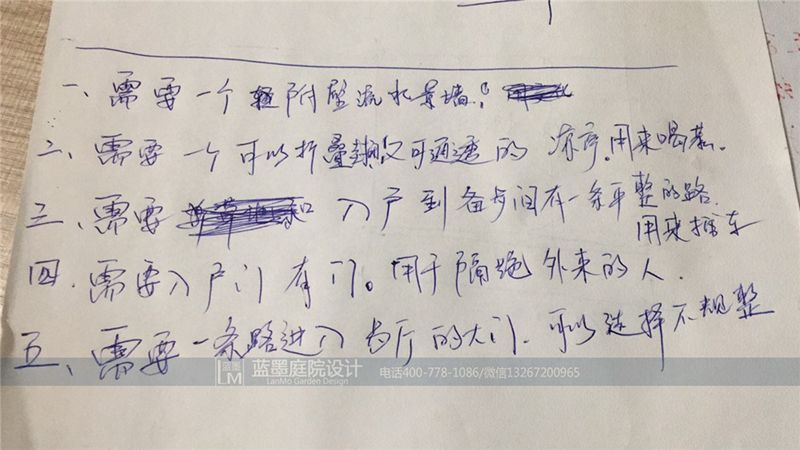 一、需要一个附壁流水景墙。
二、需要一个可以折叠又可通透的凉亭.用来喝茶.
三、需要 入户到 有一条平整的路.
用来推车
四.需要入户门有门。用于隔绝外来的人.
五、需要一条路进入客厅的大门.可以选择不规整
蓝墨庭院设计
LanMo Garden Design
电话400-778-1086/微信13267200965
LM
蓝墨